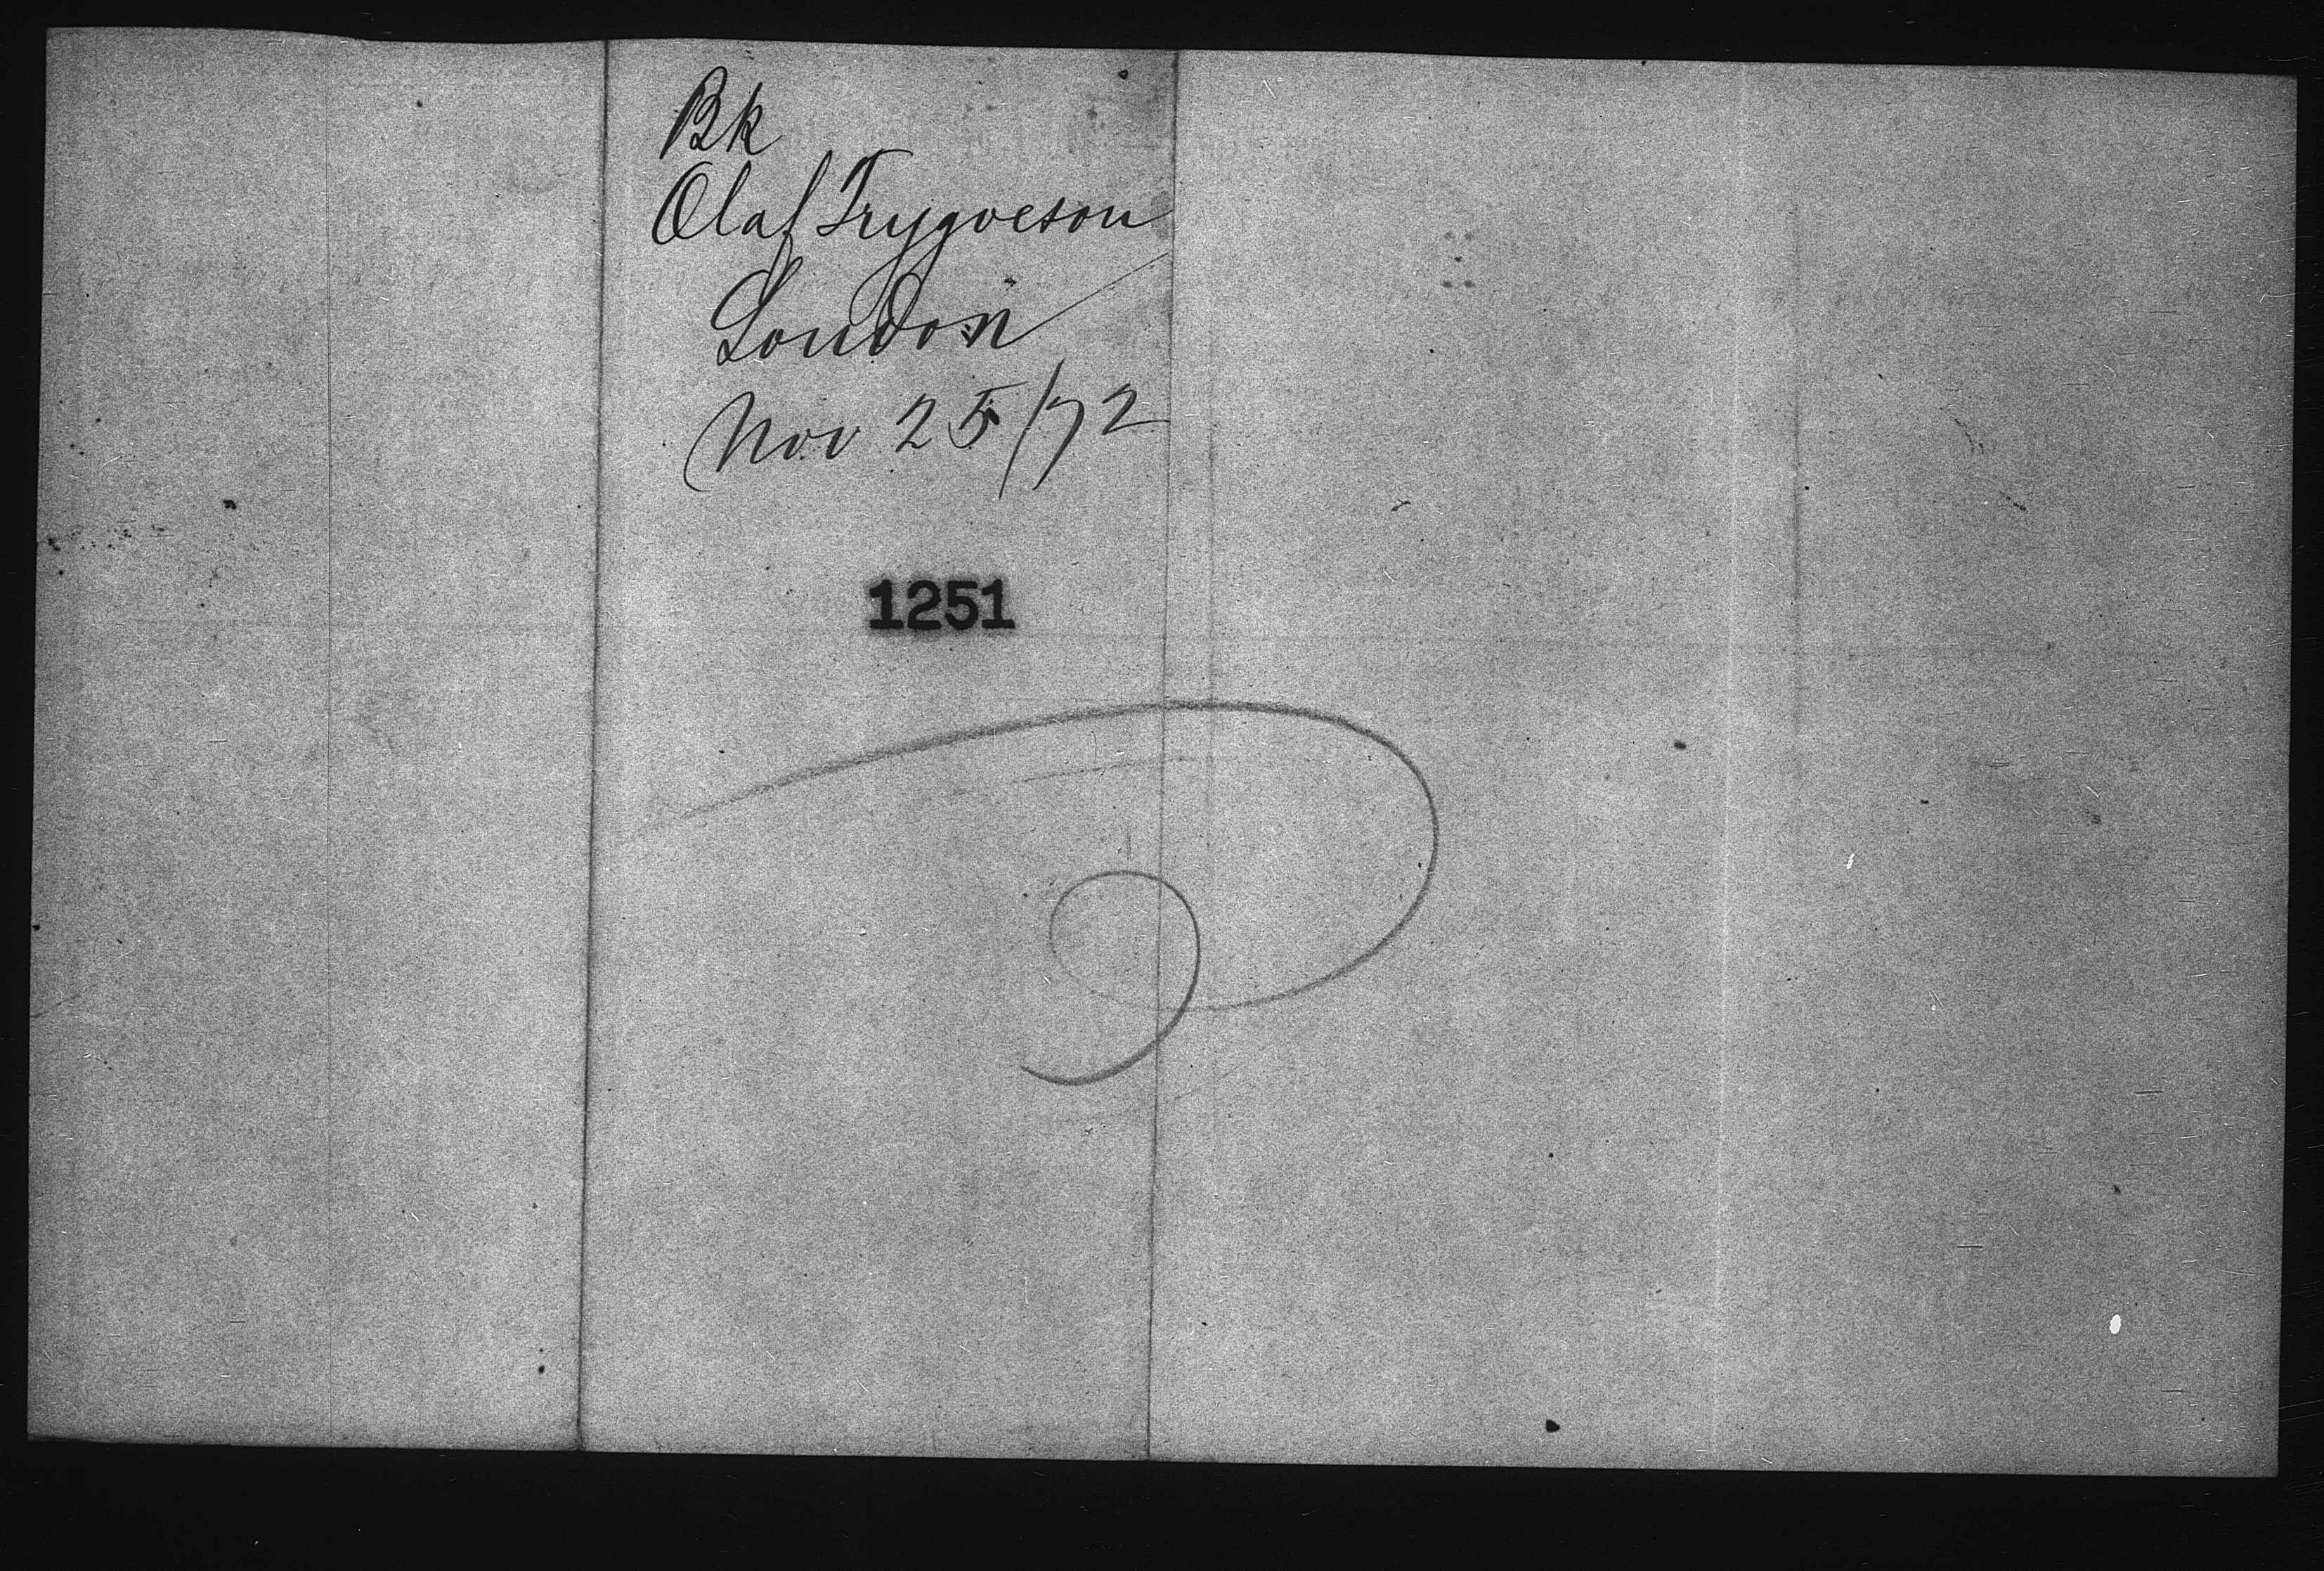 Bk
Olaf Trygveson
London
Nov 25/72
1251